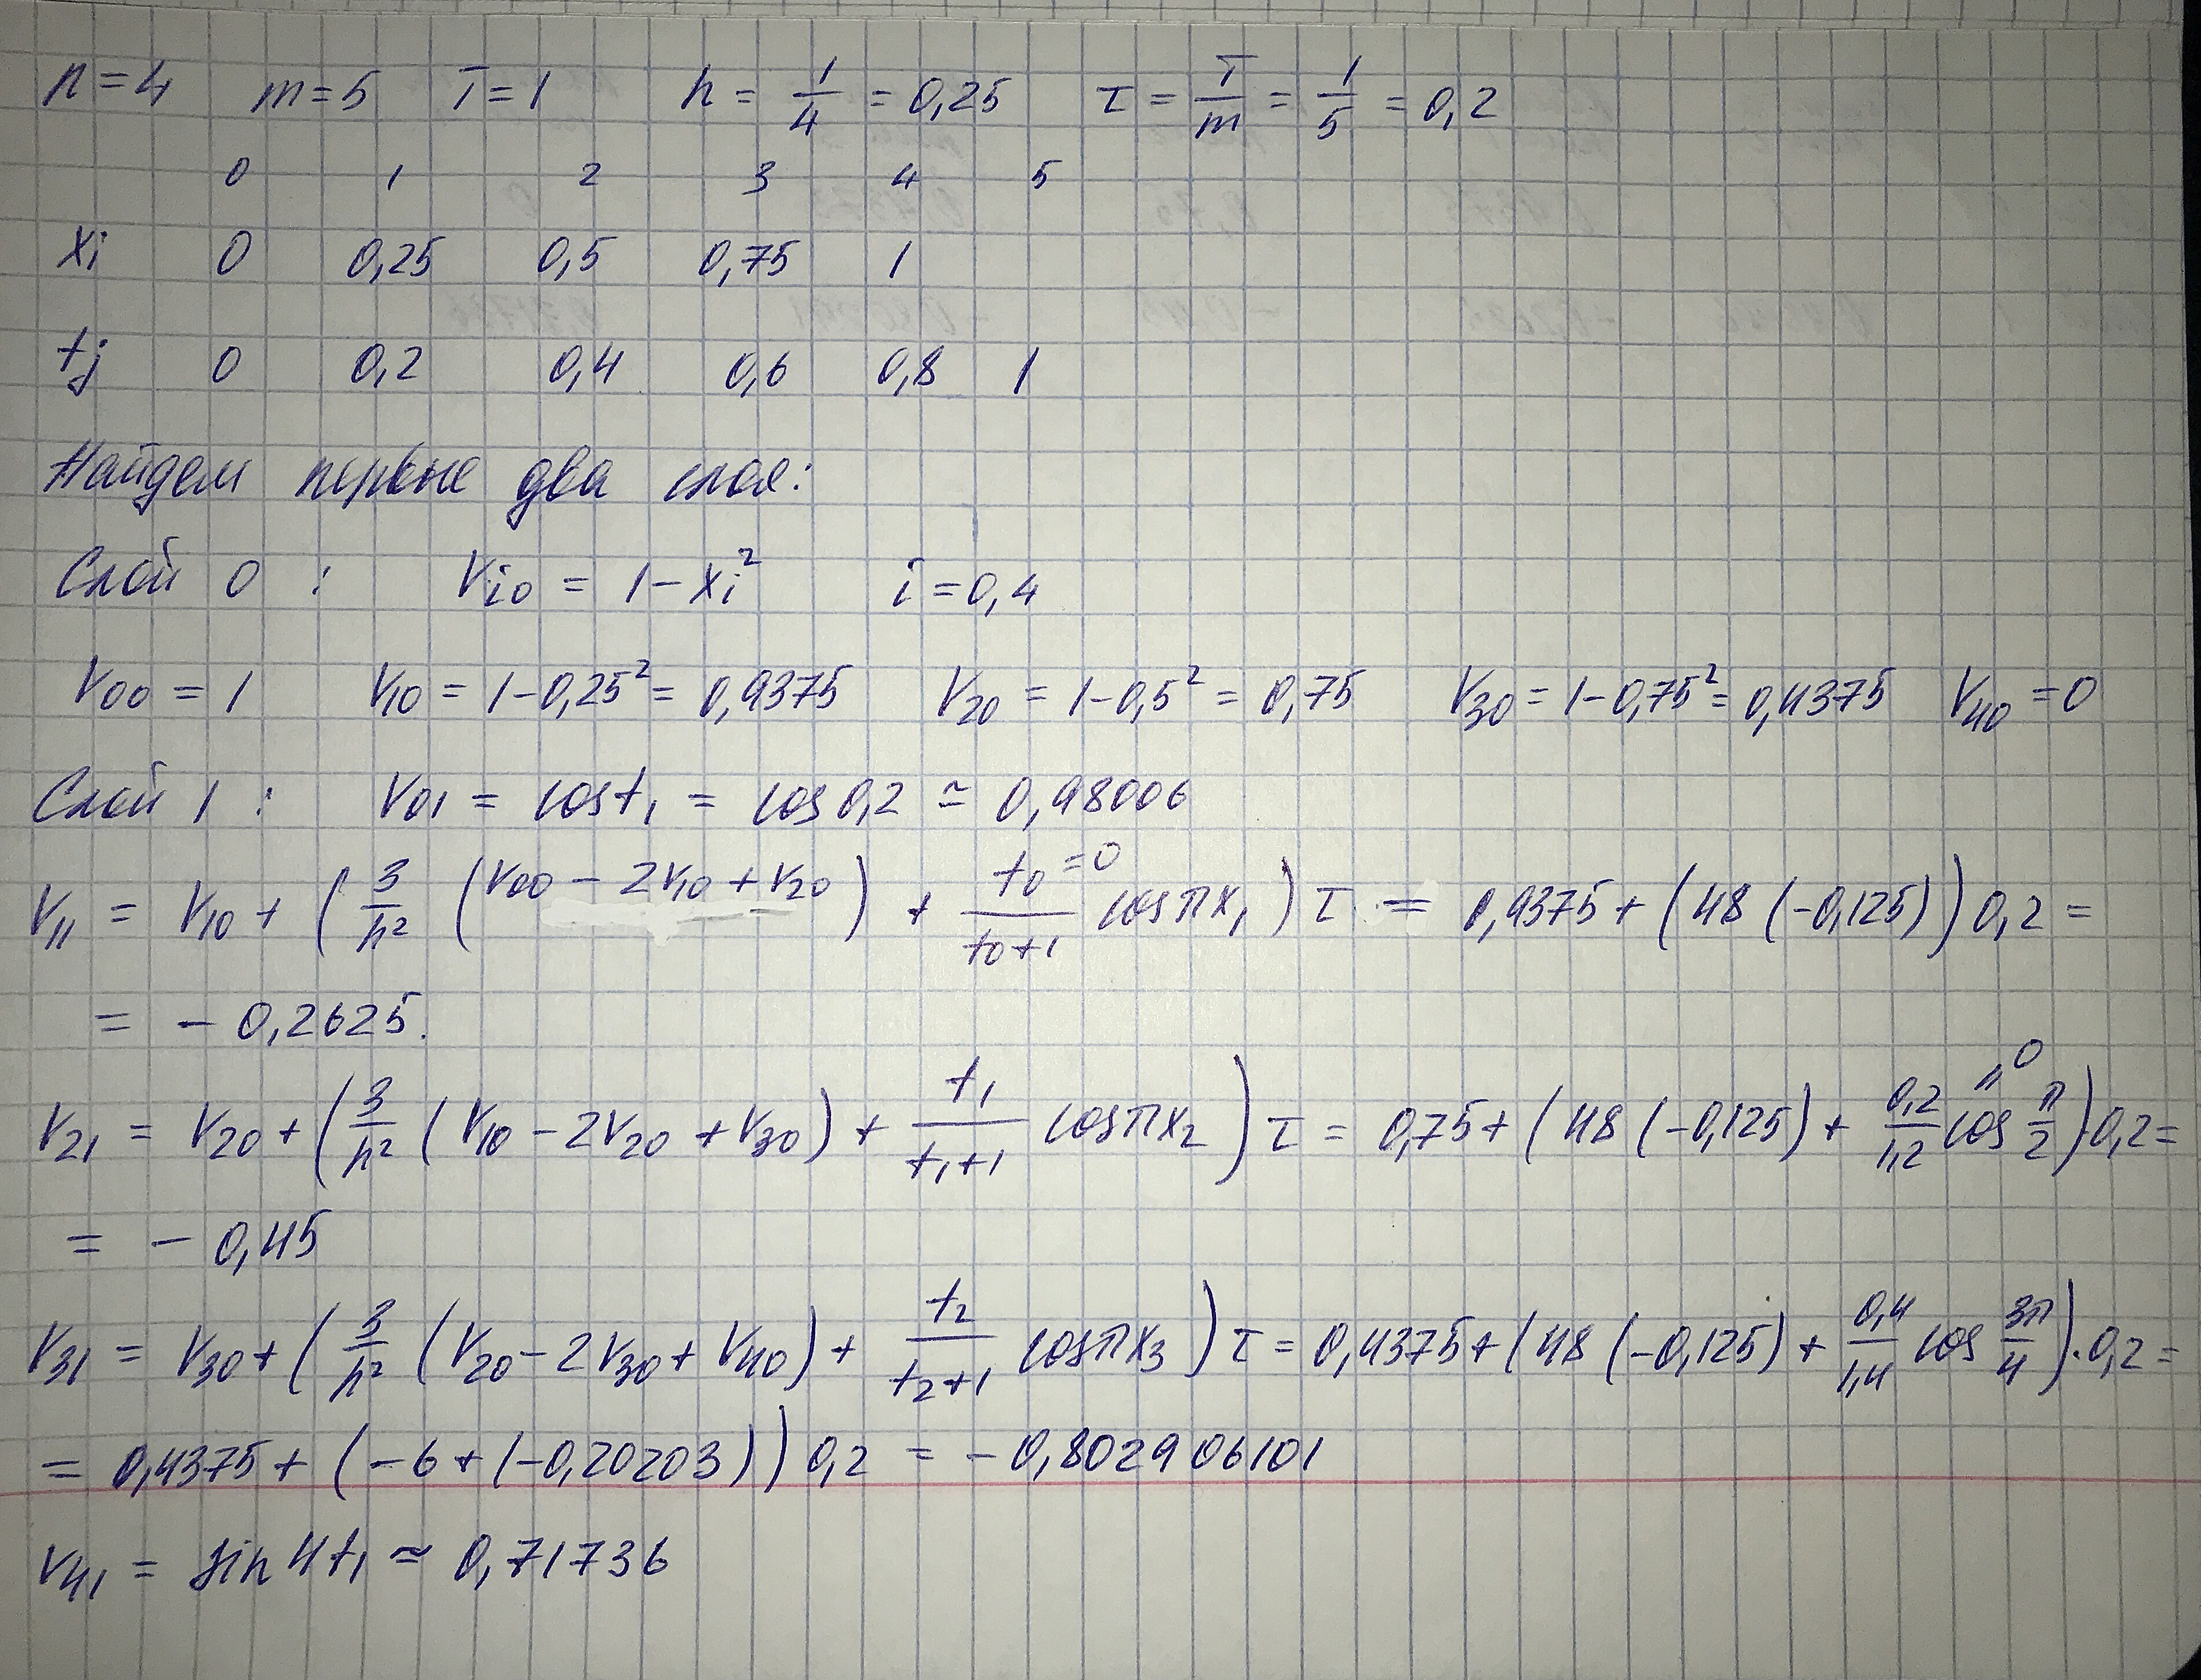 n = 4 m = 5 T = 1 h = 1/4 = 0,25 τ = T/m = 1/5 = 0,2
0 1 2 3 4 5
xi 0 0,25 0,5 0,75 1
tj 0 0,2 0,4 0,6 0,8 1
Найдем первые два слоя:
Слой 0 : Vi0 = 1 - xi² i = 0,4
V00 = 1 V10 = 1 - 0,25² = 0,9375 V20 = 1 - 0,5² = 0,75 V30 = 1 - 0,75² = 0,4375 V40 = 0
Слой 1 : V01 = cos t1 = cos 0,2 ≃ 0,98006
V11 = V10 + (3/h² (V00 - 2V10 + V20) + t0 = 0/(t0+1) cos πx1) τ = 0,9375 + (48 (-0,125)) 0,2 =
= - 0,2625.
V21 = V20 + (3/h² (V10 - 2V20 + V30) + t1/(t1+1) cos πx2) τ = 0,75 + (48 (-0,125) + 0,2/1,2 cos π/2 = 0) 0,2 =
= - 0,45
V31 = V30 + (3/h² (V20 - 2V30 + V40) + t2/(t2+1) cos πx3) τ = 0,4375 + (48 (-0,125) + 0,4/1,4 cos 3π/4) · 0,2 =
= 0,4375 + (-6 + (-0,20203)) 0,2 = - 0,802906101
V41 = sin 4t1 ≈ 0,71736